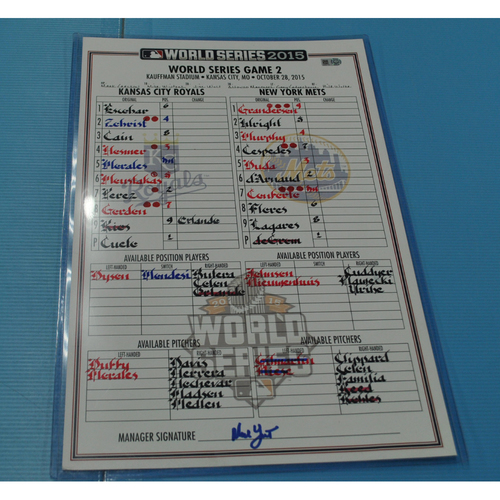 WORLD SERIES 2015
WORLD SERIES GAME 2
KAUFFMAN STADIUM • KANSAS CITY, MO • OCTOBER 28, 2015
KANSAS CITY ROYALS NEW YORK METS
ORIGINAL POS. CHANGE ORIGINAL POS. CHANGE
1 Escobar 6 1 Granderson 9
2 Zobrist 4 2 Wright 5
3 Cain 8 3 Murphy 4
4 Hosmer 3 4 Cespedes 7
5 Morales DH 5 Duda 3
6 Moustakas 5 6 d'Arnaud 2
7 Perez 2 7 Conforto DH
8 Gordon 7 8 Flores 6
9 Rios 9 Orlando 9 Lagares 8
P Cueto 1 P deGrom 1
AVAILABLE POSITION PLAYERS AVAILABLE POSITION PLAYERS
LEFT-HANDED SWITCH RIGHT-HANDED LEFT-HANDED SWITCH RIGHT-HANDED
Dyson Mondesi Butera Johnson Cuddyer
Colon Nieuwenhuis Plawecki
Orlando Uribe
2015
WORLD SERIES
AVAILABLE PITCHERS AVAILABLE PITCHERS
LEFT-HANDED RIGHT-HANDED LEFT-HANDED RIGHT-HANDED
Duffy Davis Clippard
Morales Herrera Niese Colon
Hochevar Familia
Madson Reed
Medlen Robles
MANAGER SIGNATURE